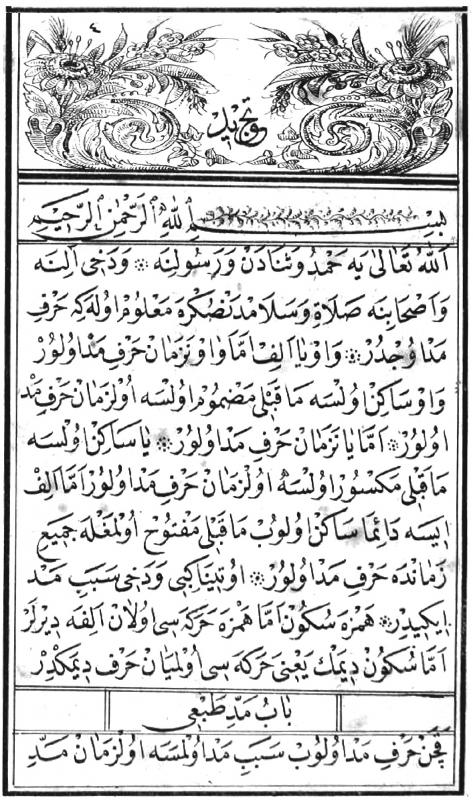 ٤
تجويد
بسم الله الرحمن الرحيم
اَللّٰهُ تَعَالٰى يَه حَمْدُ وَثَنَادَنْ وَرَسُولِنَه ❊ وَدَخِى اٰلِنَه
وَاَصْحَابِنَه صَلَاةِ وَسَلَامْدَنْصُكْرَه مَعْلُومْ اُولَه كِه حَرْفِ
مَدْ اُوچْدُرْ ❊ وَاوْ يَا اَلِفْ اَمَّا وَاوْ نَزَمَانْ حَرْفِ مَدْ اُولُورْ
وَاوْ سَاكِنْ اُولْسَه مَا قَبْلِى مَضْمُومْ اُولْسَه اُولْزَمَانْ حَرْفِ مَدْ
اُولُورْ ❊ اَمَّا يَا نَزَمَانْ حَرْفِ مَدْ اُولُورْ ❊ يَا سَاكِنْ اُولْسَه
مَا قَبْلِى مَكْسُورْ اُولْسَه اُولْزَمَانْ حَرْفِ مَدْ اُولُورْ اَمَّا اَلِفْ
اِيسَه دَائِمَا سَاكِنْ اُولُوبْ مَا قَبْلِى مَفْتُوحْ اُولْمَغْلَه جَمِيعِ
زَمَانْدَه حَرْفِ مَدْ اُولُورْ ❊ اُوتِينَا كِبِى وَدَخِى سَبَبِ مَدْ
اِيكِيدِرْ ❊ هَمْزَه سُكُونْ اَمَّا هَمْزَه حَرَكَه سِى اُولَانْ اَلِفَه دِيرْلَرْ
اَمَّا سُكُونْ دِيمَكْ يَعْنِى حَرَكَه سِى اُولْمَيَانْ حَرْفِ دِيمَكْدِرْ
بَابُ مَدِّ طَبْعِى
قَچَنْ حَرْفِ مَدْ اُولُوبْ سَبَبِ مَدْ اُولْمَسَه اُولْزَمَانْ مَدِّ